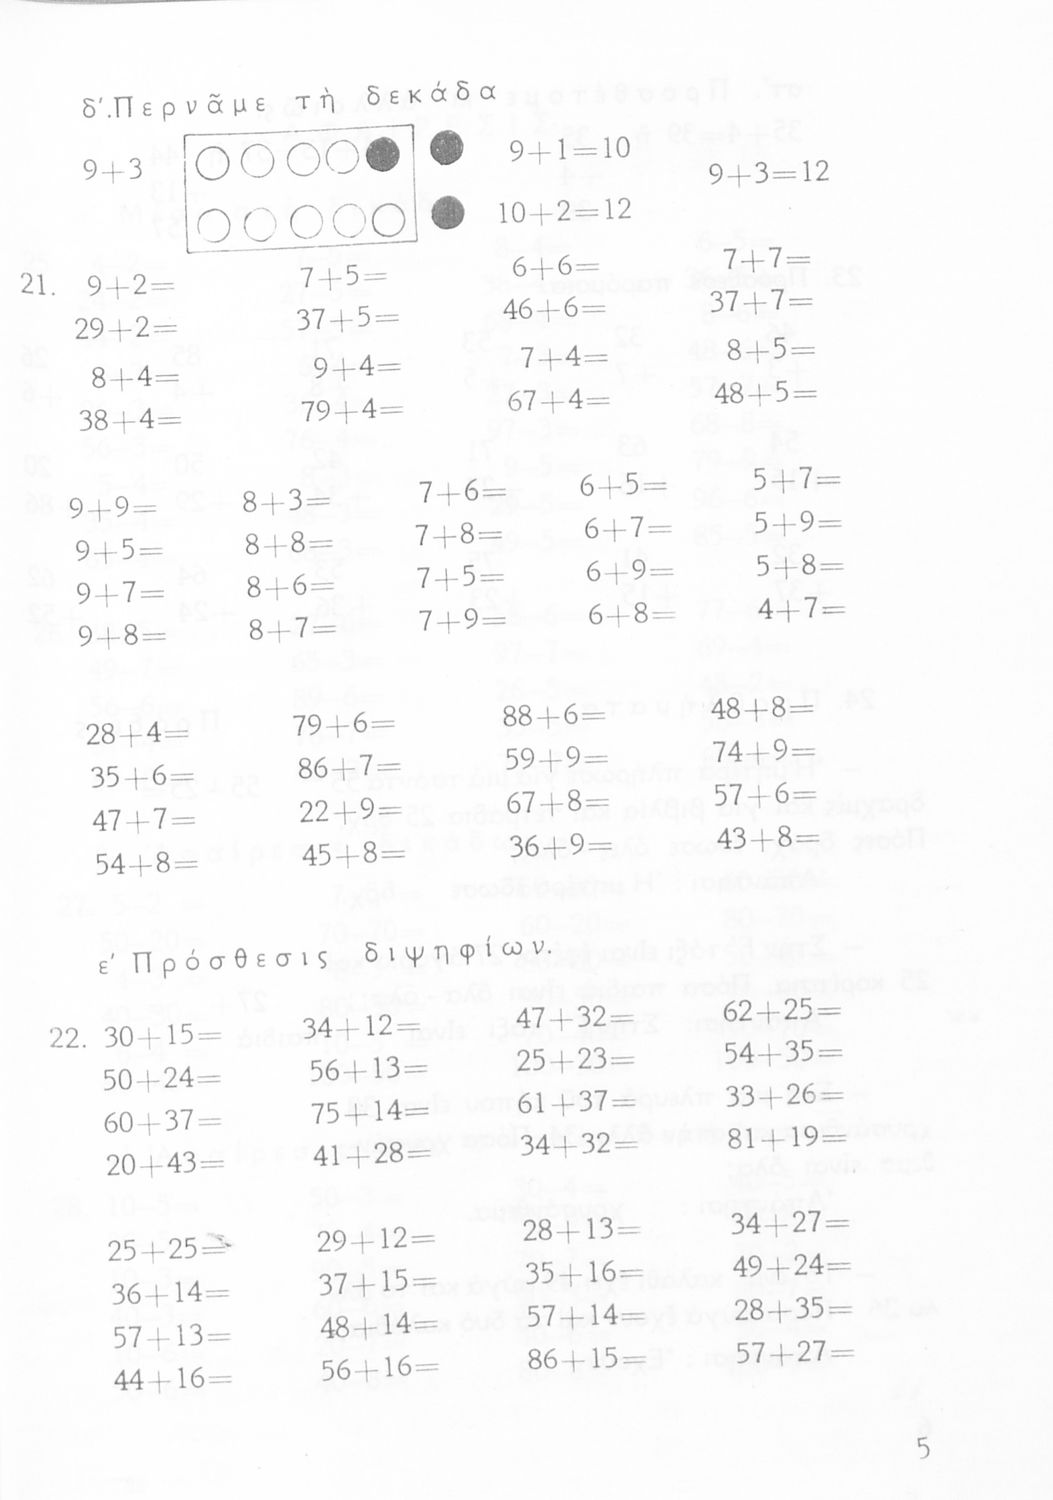 δ'. Περνᾶμε τὴ δεκάδα
9+3 9+1=10 9+3=12
10+2=12
21. 9+2= 7+5= 6+6= 7+7=
29+2= 37+5= 46+6= 37+7=
8+4= 9+4= 7+4= 8+5=
38+4= 79+4= 67+4= 48+5=
9+9= 8+3= 7+6= 6+5= 5+7=
9+5= 8+8= 7+8= 6+7= 5+9=
9+7= 8+6= 7+5= 6+9= 5+8=
9+8= 8+7= 7+9= 6+8= 4+7=
28+4= 79+6= 88+6= 48+8=
35+6= 86+7= 59+9= 74+9=
47+7= 22+9= 67+8= 57+6=
54+8= 45+8= 36+9= 43+8=
ε' Πρόσθεσις διψηφίων.
22. 30+15= 34+12= 47+32= 62+25=
50+24= 56+13= 25+23= 54+35=
60+37= 75+14= 61+37= 33+26=
20+43= 41+28= 34+32= 81+19=
25+25= 29+12= 28+13= 34+27=
36+14= 37+15= 35+16= 49+24=
57+13= 48+14= 57+14= 28+35=
44+16= 56+16= 86+15= 57+27=
5